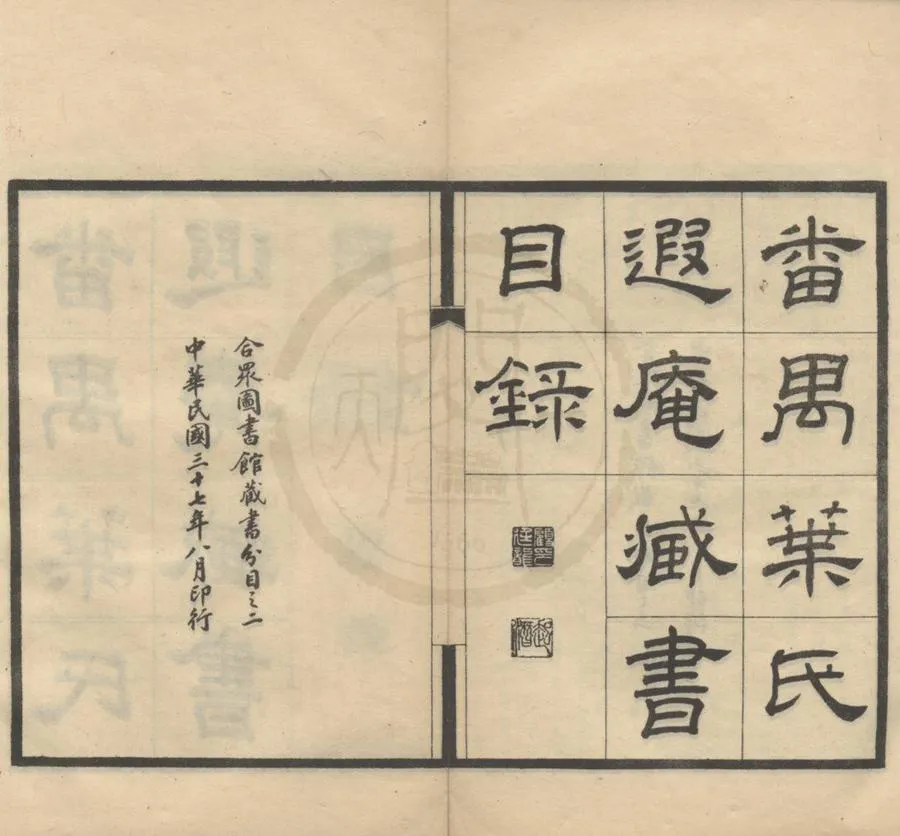 番禺葉氏
遐庵藏書
目錄
顧廷龍印
起潛
合眾圖書館藏書分目之二
中華民國三十七年八月印行